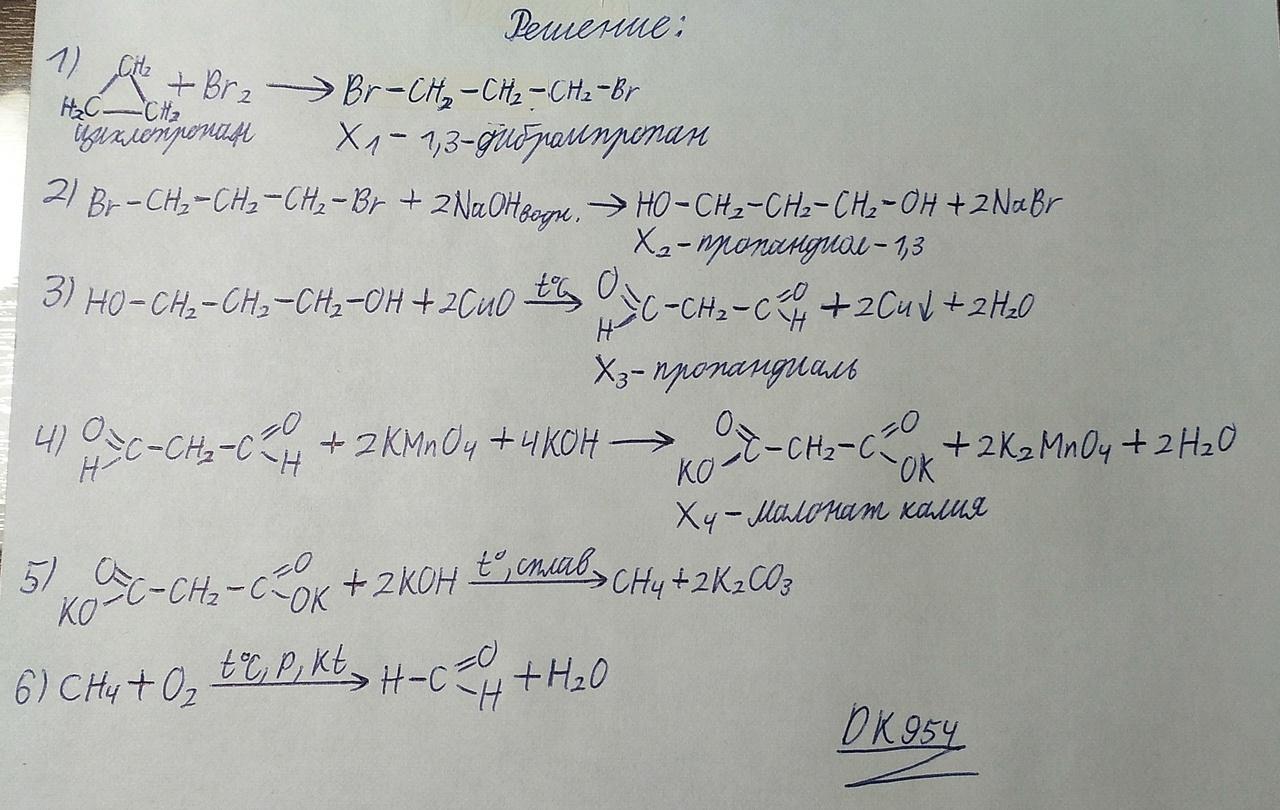 Решение:
1) CH₂ H₂C CH₂ + Br₂ → Br–CH₂–CH₂–CH₂–Br
циклопропан X₁ – 1,3-дибромпропан
2) Br–CH₂–CH₂–CH₂–Br + 2NaOHводн. → HO–CH₂–CH₂–CH₂–OH + 2NaBr
X₂ – пропандиол-1,3
3) HO–CH₂–CH₂–CH₂–OH + 2CuO t°C → O H C–CH₂–C O H + 2Cu↓ + 2H₂O
X₃ – пропандиаль
4) O H C–CH₂–C O H + 2KMnO₄ + 4KOH → O KO C–CH₂–C O OK + 2K₂MnO₄ + 2H₂O
X₄ – малонат калия
5) O KO C–CH₂–C O OK + 2KOH t°, сплав → CH₄ + 2K₂CO₃
6) CH₄ + O₂ t°C, P, Kt → H–C O H + H₂O
DK954